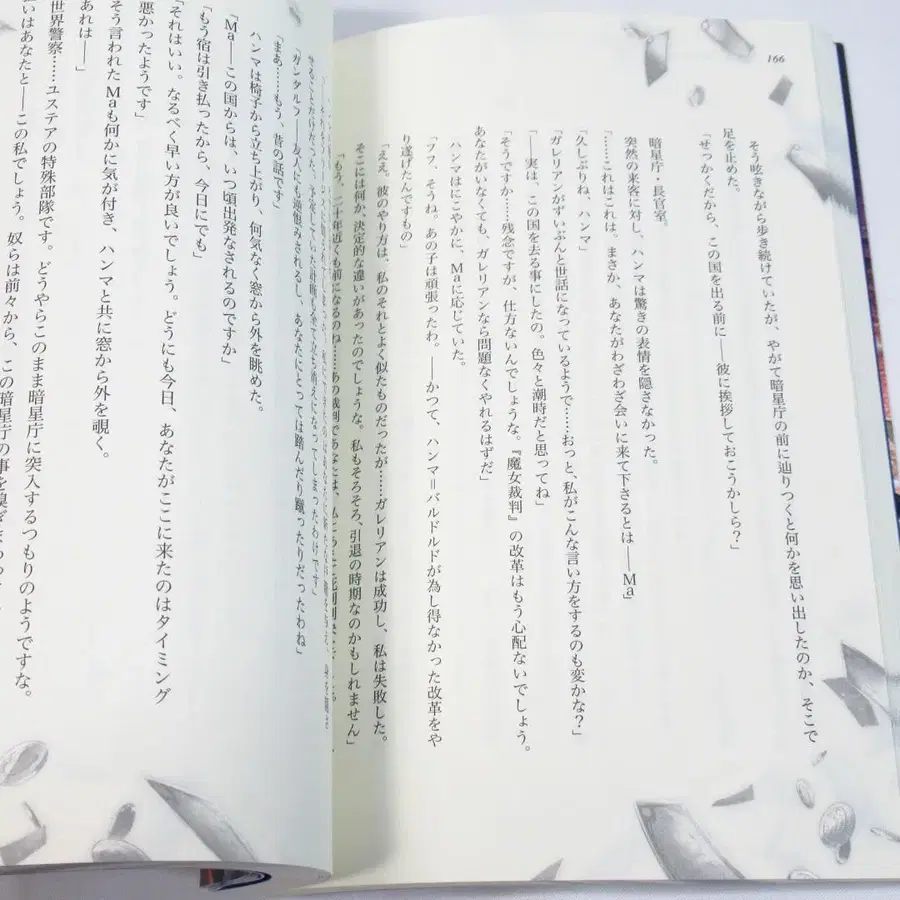 166
そう呟きながら歩き続けていたが、やがて暗星庁の前に辿りつくと何かを思い出したのか、そこで
足を止めた。
「せっかくだから、この国を出る前に――彼に挨拶しておこうかしら？」
暗星庁・長官室。
突然の来客に対し、ハンマは驚きの表情を隠さなかった。
「……これはこれは。まさか、あなたがわざわざ会いに来て下さるとは――Ｍａ」
「久しぶりね、ハンマ」
「ガレリアンがずいぶんと世話になっているようで……おっと、私がこんな言い方をするのも変かな？」
「――実は、この国を去る事にしたの。色々と潮時だと思ってね」
「そうですか……残念ですが、仕方ないんでしょうな。『魔女裁判』の改革はもう心配ないでしょう。
あなたがいなくても、ガレリアンなら問題なくやれるはずだ」
ハンマはにこやかに、Ｍａに応じていた。
「フフ、そうね。あの子は頑張ったわ。――かつて、ハンマ＝バルドルドが為し得なかった改革をや
り遂げたんですもの」
「ええ。彼のやり方は、私のそれとよく似たものだったが……ガレリアンは成功し、私は失敗した。
そこには何か、決定的な違いがあったのでしょうな。私もそろそろ、引退の時期なのかもしれません」
「もう、二十年近くも前になるのね……あの裁判であなたは、私に
「ガンタルフ――友人にも逆恨みされるし、あなたにとっては踏んだり蹴ったりだったわね」
「まあ……もう、昔の話です」
ハンマは椅子から立ち上がり、何気なく窓から外を眺めた。
「Ｍａ――この国からは、いつ頃出発なされるのですか」
「もう宿は引き払ったから、今日にでも」
「それはいい。なるべく早い方が良いでしょう。どうにも今日、あなたがここに来たのはタイミング
悪かったようです」
そう言われたＭａも何かに気が付き、ハンマと共に窓から外を覗く。
あれは――」
世界警察……ユステアの特殊部隊です。どうやらこのまま暗星庁に突入するつもりのようですな。
いはあなたと――この私でしょう。奴らは前々から、この暗星庁の事を